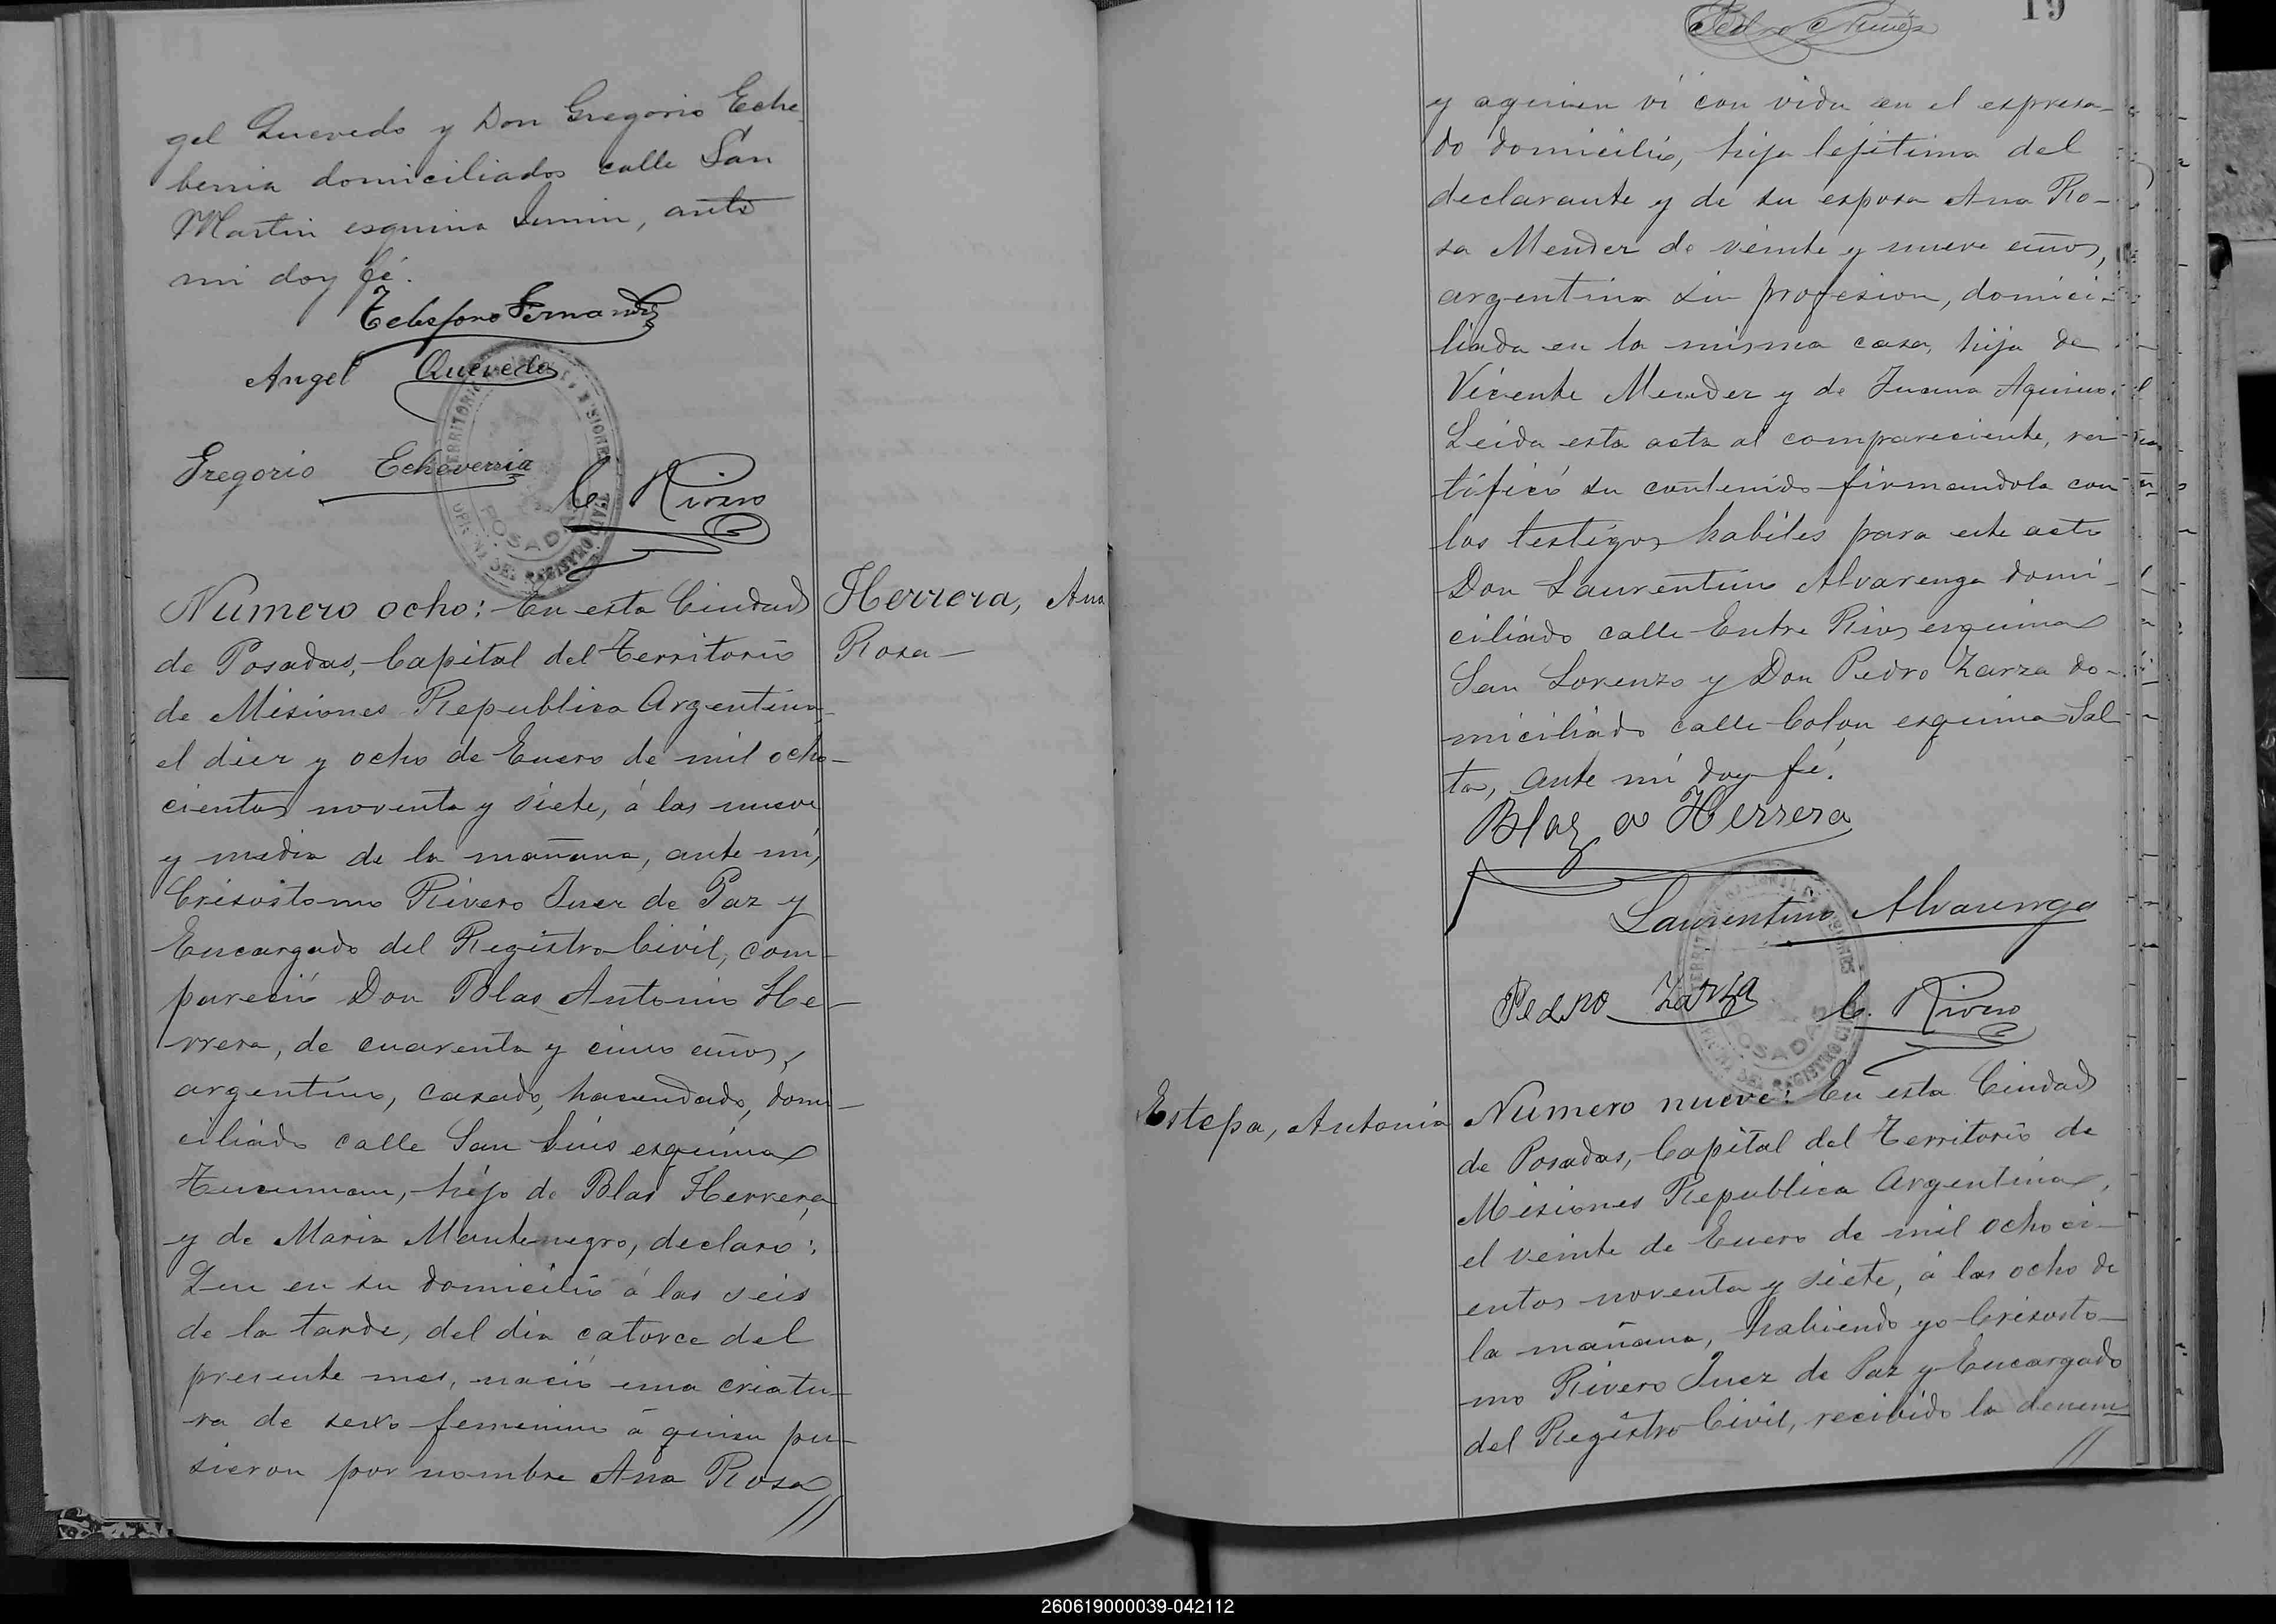 gel Quevedo y Don Gregorio Eche
berria domiciliados calle San
Martin esquina Junin, ante
mi doy fé.
Telesforo Fernandez
Angel Quevedo
Gregorio Echeverria
C. Rivero
Numero ocho: En esta Ciudad
de Posadas, Capital del Territorio
de Misiones Republica Argentina,
el diez y ocho de Enero de mil ocho-
cientos noventa y siete, á las nueve
y media de la mañana, ante mi,
Crisostomo Rivero Juez de Paz y
Encargado del Registro Civil, com-
pareció Don Blas Antonio He-
rrera, de cuarenta y cinco años,
argentino, casado, hacendado, domi-
ciliado calle San Luis esquina
Tucuman, hijo de Blas Herrera
y de Maria Montenegro, declaro:
Que en su domicilio á las seis
de la tarde, del dia catorce del
presente mes, nació una criatu-
ra de sexo femenino á quien pu-
sieron por nombre Ana Rosa
//
Herrera, Ana
Rosa-
19
Pedro Nuñez
y aquien ví con vida en el espresa-
do domicilio, hija lejitima del
declarante y de su esposa Ana Ro-
sa Mendez de veinte y nueve años,
argentina sin profesion, domici-
liada en la misma casa, hija de
Vicente Mendez y de Juana Aquino.
Leida esta acta al compareciente, ra-
tificó su contenido firmandola con
los testigos habiles para este acto
Don Laurentino Alvarenga domi-
ciliado calle Entre Rios esquina
San Lorenzo y Don Pedro Zarza do-
miciliado calle Colon esquina Sal
ta, ante mí doy fé.
Blaz a Herrera
Laurentino Alvarenga
Pedro Zarza
C. Rivero
Estepa, Antonia
Numero nueve: En esta Ciudad
de Posadas, Capital del Territorio de
Misiones Republica Argentina,
el veinte de Enero de mil ochoci-
entos noventa y siete, á las ocho de
la mañana, habiendo yo Crisosto-
mo Rivero Juez de Paz y Encargado
del Registro Civil, recibido la denun
//
260619000039-042112